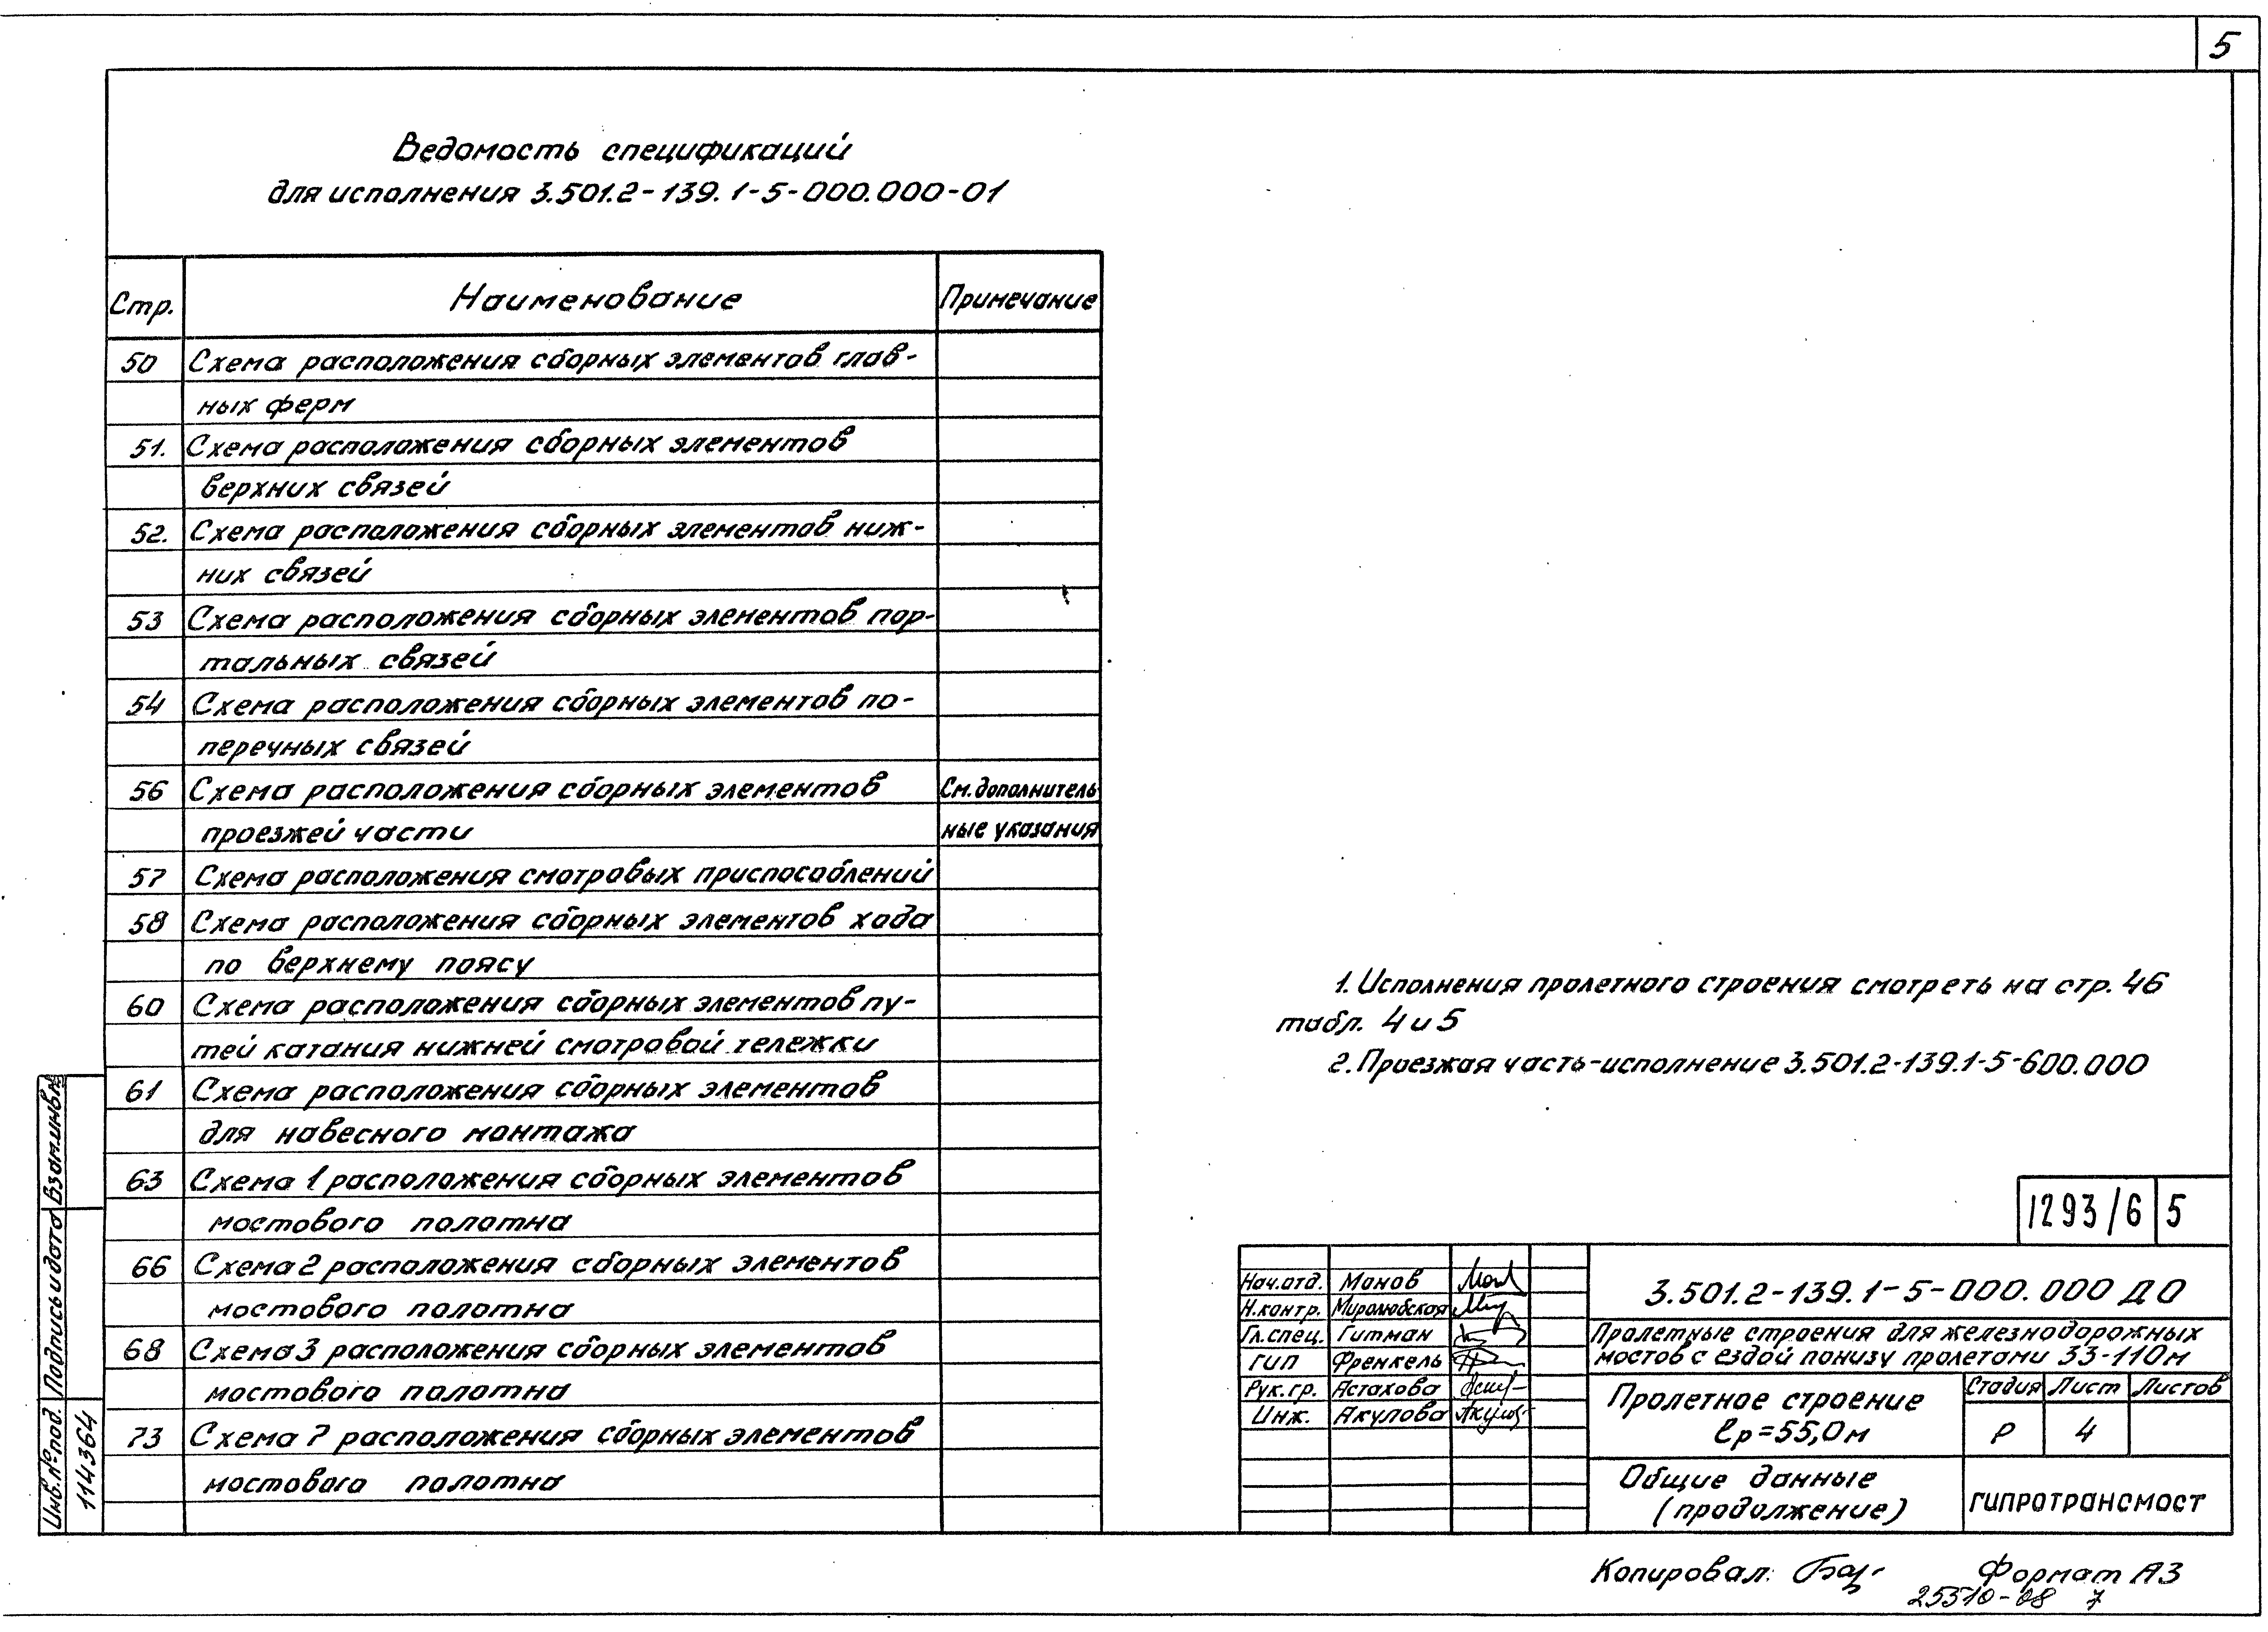 5
Ведомость спецификаций
для исполнения 3.501.2-139.1-5-000.000-01
Стр. Наименование Примечание
50 Схема расположения сборных элементов глав-
ных ферм
51. Схема расположения сборных элементов
верхних связей
52. Схема расположения сборных элементов ниж-
них связей
53 Схема расположения сборных элементов пор-
тальных связей
54 Схема расположения сборных элементов по-
перечных связей
56 Схема расположения сборных элементов См. дополнитель-
проезжей части ные указания
57 Схема расположения смотровых приспособлений
58 Схема расположения сборных элементов хода
по верхнему поясу
60 Схема расположения сборных элементов пу-
тей катания нижней смотровой тележки
61 Схема расположения сборных элементов
для навесного монтажа
63 Схема 1 расположения сборных элементов
мостового полотна
66 Схема 2 расположения сборных элементов
мостового полотна
68 Схема 3 расположения сборных элементов
мостового полотна
73 Схема 7 расположения сборных элементов
мостового полотна
1. Исполнения пролетного строения смотреть на стр. 46
табл. 4 и 5
2. Проезжая часть-исполнение 3.501.2-139.1-5-600.000
1293/6 5
Нач.отд. Монов
Н.контр. Миролюбская
Гл.спец. Гитман
ГИП Френкель
Рук.гр. Астахова
Инж. Акулова
3.501.2-139.1-5-000.000 ДО
Пролетные строения для железнодорожных
мостов с ездой понизу пролетами 33-110м
Пролетное строение
lр=55,0м
Стадия Лист Листов
Р 4
Общие данные
(продолжение)
ГИПРОТРАНСМОСТ
Взам.инв.№
Подпись и дата
Инв.№ под.
114364
Копировал: Формат А3
25310-08 7